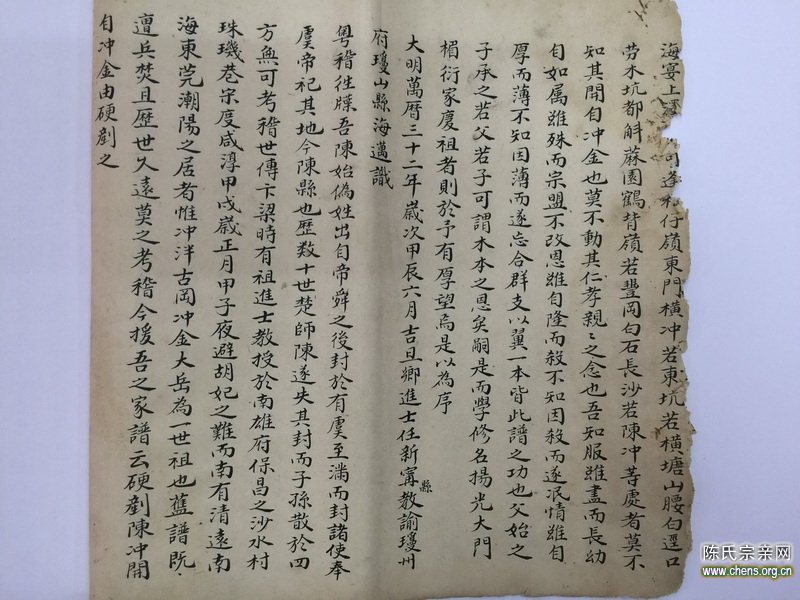 海宴上 逢 仔嶺東門橫冲若東坑若橫塘山腰白逕口
勞木坑都斛蔴園鶴背嶺若豐岡白石長沙若陳冲等處者莫不
知其開自冲金也莫不動其仁孝親〻之念也吾知服雖盡而長幼
自如属雖殊而宗盟不改恩雖自隆而殺不知因殺而遂泯情雖自
厚而薄不知因薄而遂忘合群支以翼一本皆此譜之功也父始之
子承之若父若子可謂木本之恩矣嗣是而學修名揚光大門
楣衍家慶祖者則於予有厚望焉是以為序
大明萬曆三十二年歲次甲辰六月吉旦鄉進士任新寧縣教諭瓊州
府瓊山縣海邁識
粵稽徃牒吾陳始偽姓出自帝舜之後封於有虞至滿而封諸使奉
虞帝祀其地今陳縣也歷数十世楚師陳遂失其封而子孫散於四
方無可考稽世傳卞梁時有祖進士教授於南雄府保昌之沙水村
珠璣巷宋度咸淳甲戌歲正月甲子夜避胡妃之難而南有清遠南
海東莞潮陽之居者惟冲泮古岡冲金大岳為一世祖也舊譜既〻
遭兵焚且歷世久遠莫之考稽今援吾之家譜云硬劏陳冲開
自冲金由硬劏之
陈氏宗亲网
www.chens.org.cn